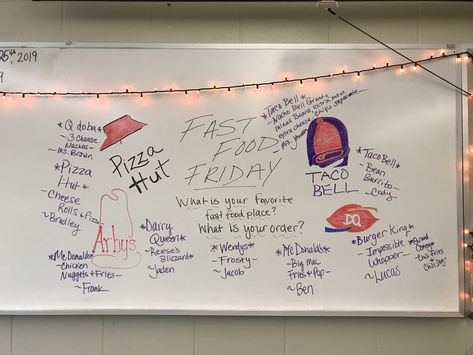 25th 2019
FAST
FOOD
FRIDAY
What is your favorite
fast food place?
What is your order?
* Qdoba *
- 3 Cheese
Nachos -
~ Ms. Brown
* Pizza
Hut *
- Cheese
Rolls & Pizza
~ Bradley
* McDonalds *
- Chicken
Nuggets & Fries -
~ Frank
Pizza
Hut
Arby's
* Dairy
Queen *
- Reese's
Blizzard -
~ Jaden
* Wendys *
- Frosty -
~ Jacob
* McDonalds *
- Big Mac
Fries & Pop -
~ Ben
* Taco Bell *
- Nacho Bell Grande
minus Beans, extra meat
extra cheese, chips separate -
TACO
BELL
* Taco Bell *
- Bean
Burrito -
~ Cody
DQ
* Burger King *
- Impossible
Whopper -
~ Lucas